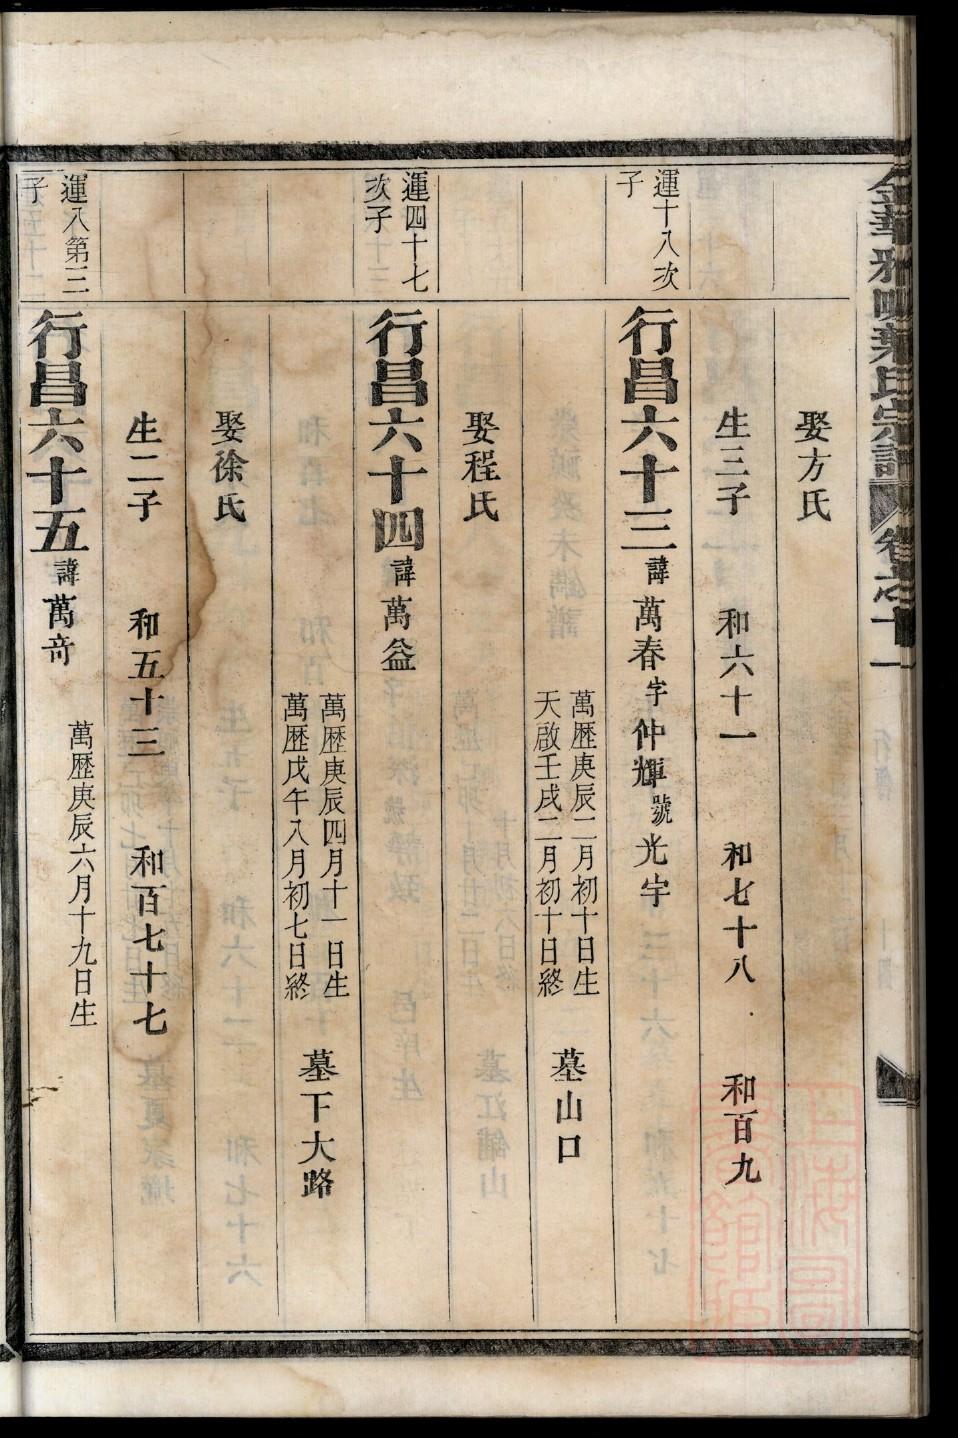 娶方氏
生三子 和六十一 和七十八 和百九
運十八次子
行昌六十三 諱萬春 字仲輝 號光宇
萬歷庚辰二月初十日生
天啟壬戌二月初十日終
墓山口
娶程氏
運四十七次子
行昌六十四 諱萬益
萬歷庚辰四月十一日生
萬歷戊午八月初七日終
墓下大路
娶徐氏
生二子 和五十三 和百七十七
運八第三子
行昌六十五 諱萬奇
萬歷庚辰六月十九日生